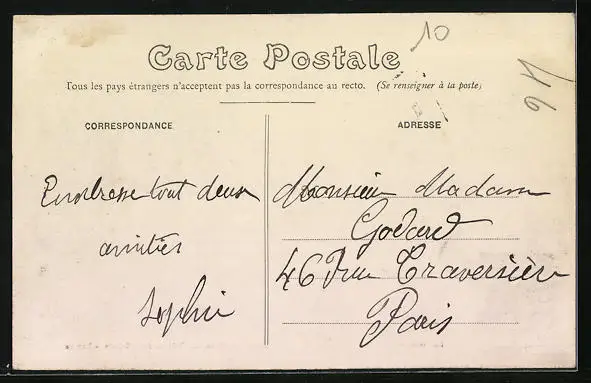 10
91
Carte Postale
Tous les pays étrangers n'acceptent pas la correspondance au recto. (Se renseigner à la poste)
CORRESPONDANCE
ADRESSE
Embrasse tout deux
amitiés
Sophie
Monsieur Madam
Godard
46 Rue Traversière
Paris